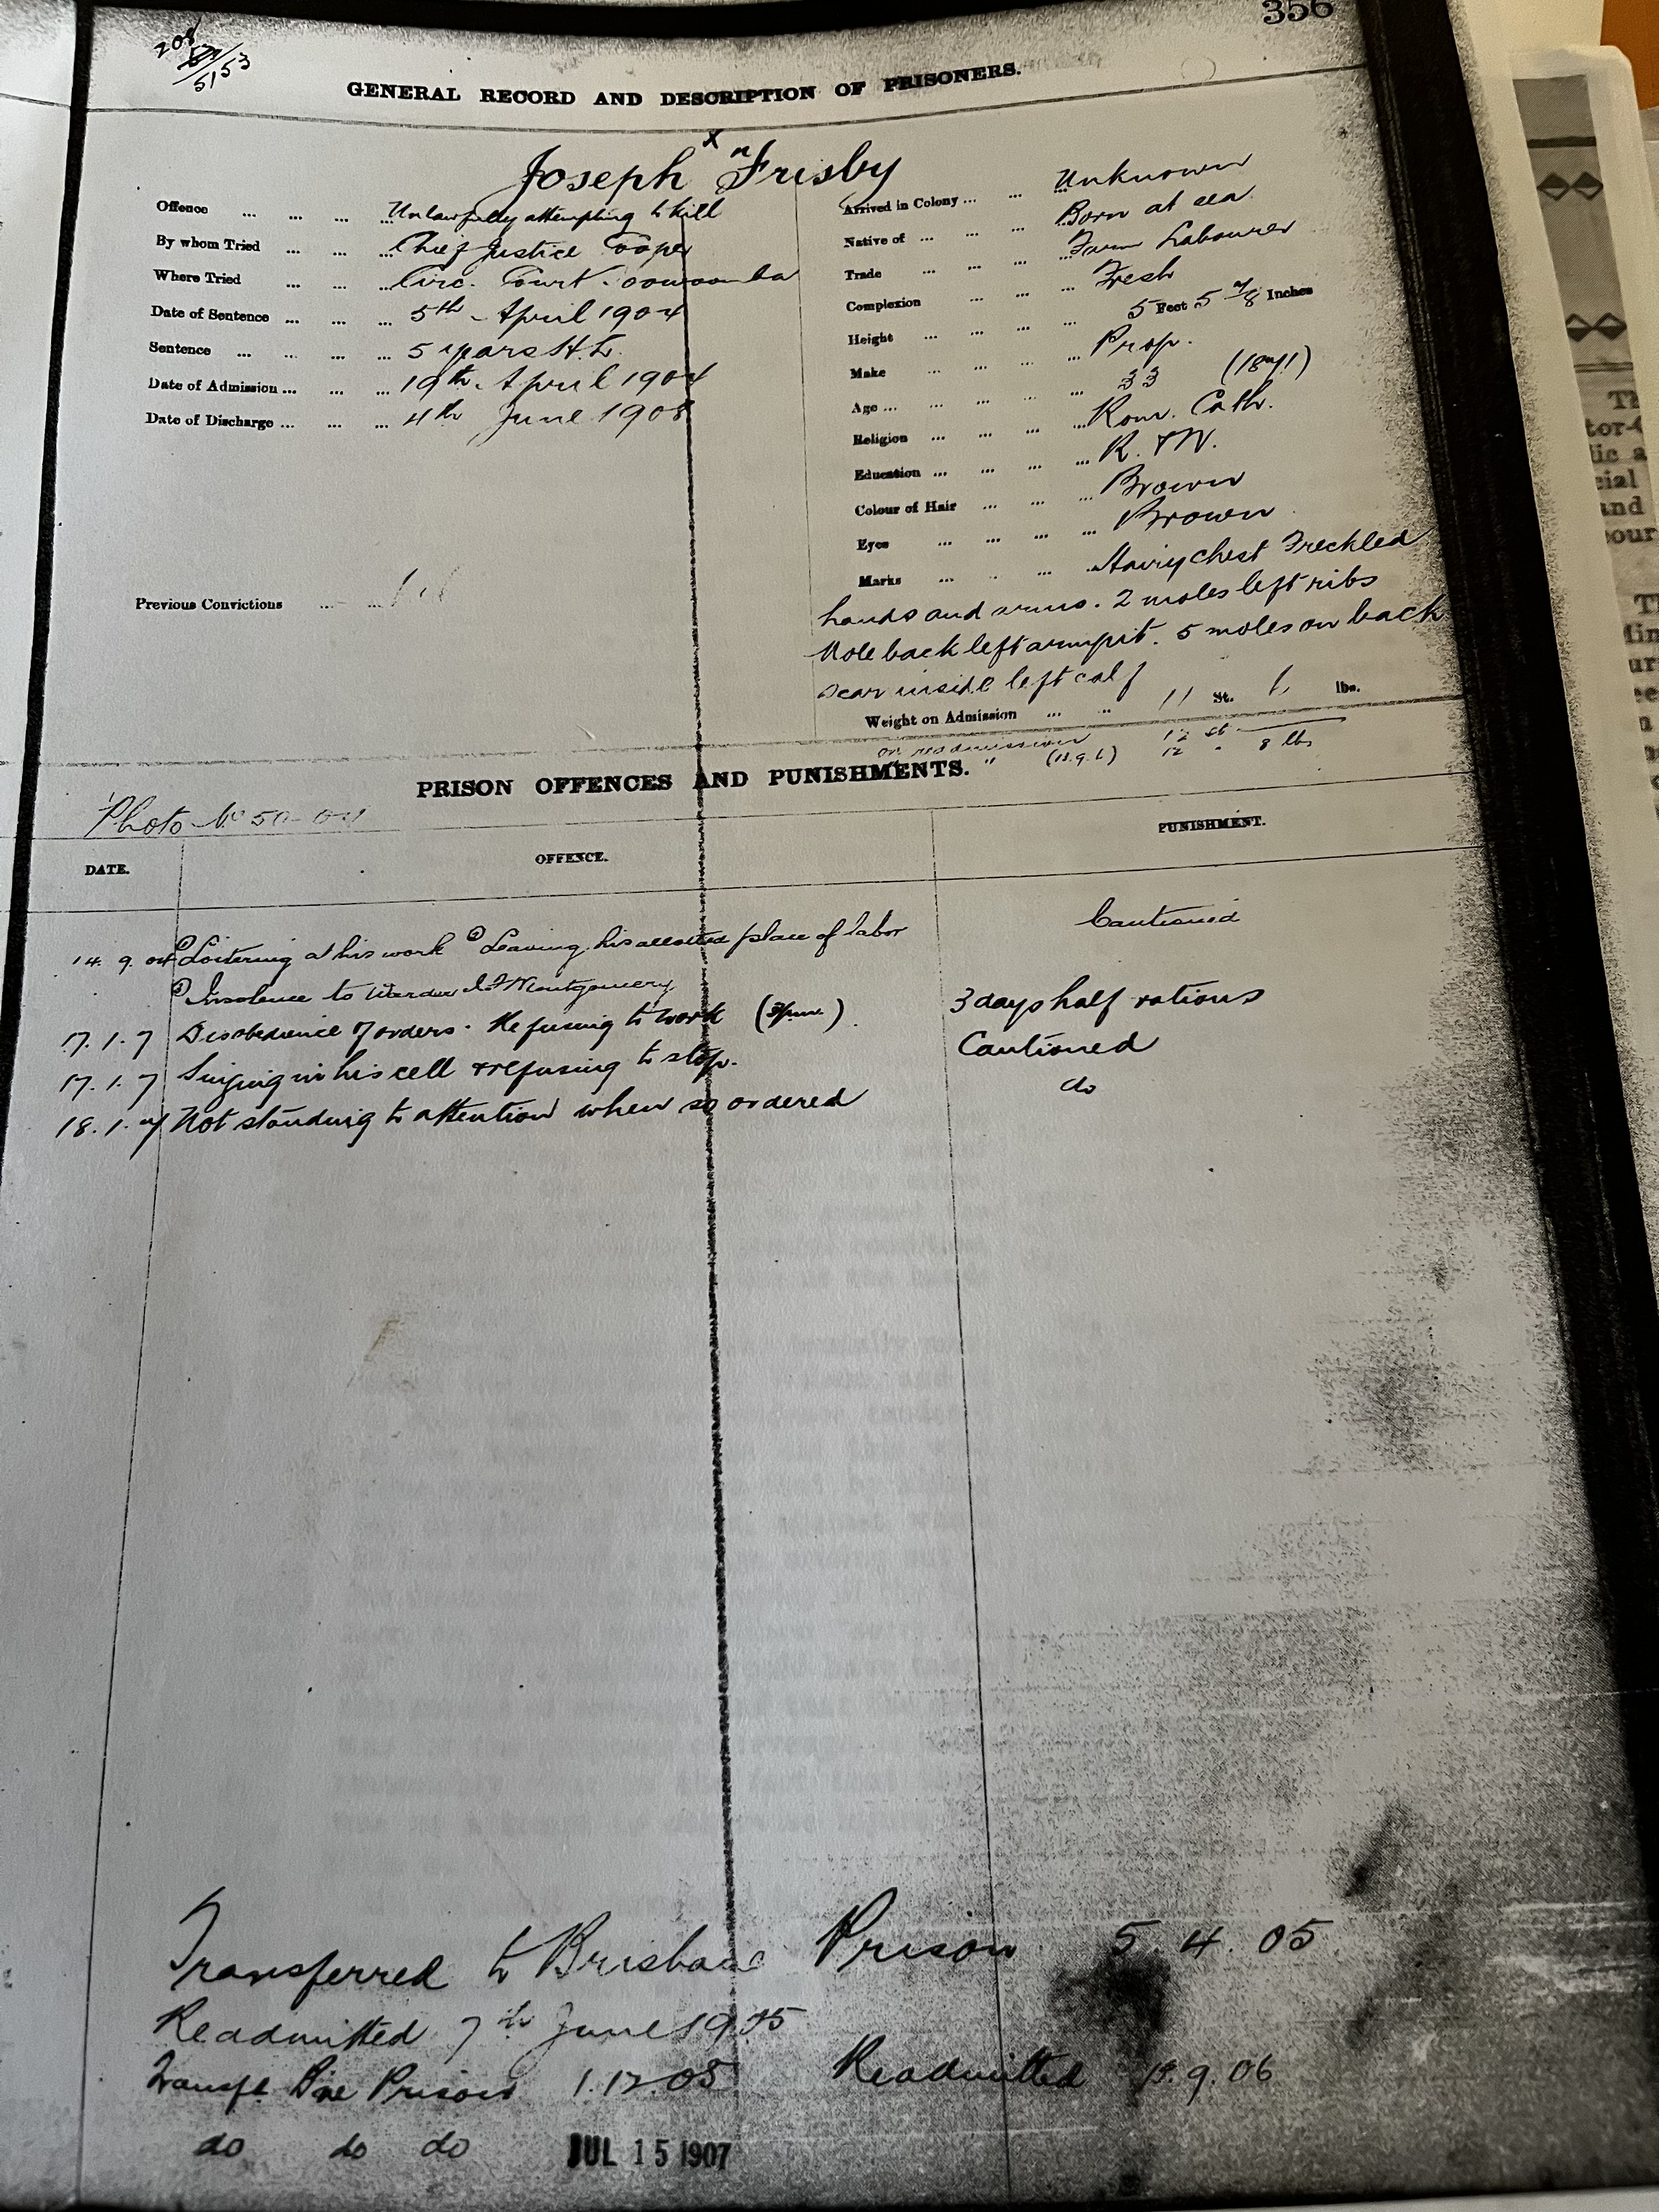 356
208
5153
GENERAL RECORD AND DESCRIPTION OF PRISONERS.
x "
Joseph Frisby
Offence ... ... ... ... Unlawfully attempting to kill
By whom Tried ... ... ... Chief Justice Cooper
Where Tried ... ... ... Circ. Court. oowoomba
Date of Sentence ... ... ... 5th April 1904
Sentence ... ... ... ... 5 years H.L.
Date of Admission ... ... ... 19th April 1904
Date of Discharge ... ... ... 4th June 1908
Previous Convictions ... ...
Arrived in Colony ... ... ... Unknown
Native of ... ... ... ... Born at sea
Trade ... ... ... ... Farm Labourer
Complexion ... ... ... Fresh
Height ... ... ... 5 Feet 5 7/8 Inches
Make ... ... ... ... Prop.
Age ... ... ... ... 33 (1871)
Religion ... ... ... ... Rom. Cath.
Education ... ... ... ... R. & W.
Colour of Hair ... ... ... Brown
Eyes ... ... ... ... Brown
Marks ... ... ... Hairy chest Freckled
hands and arms. 2 moles left ribs
Mole back left armpit. 5 moles on back
scar inside left calf
Weight on Admission ... ... 11 St. lbs.
on readmission 12 st
" (13.9.6) 12 " 8 lbs
PRISON OFFENCES AND PUNISHMENTS.
Photo No 50-04
DATE. OFFENCE. PUNISHMENT.
14. 9. 04 ① Loitering at his work ② Leaving his allotted place of labor Cautioned
③ Insolence to Warder Montgomery
17. 1. 7 Disobedience of orders. Refusing to work (3pm). 3 days half rations
17. 1. 7 Singing in his cell & refusing to stop. Cautioned
18. 1. 07 Not standing to attention when so ordered do
Transferred to Brisbane Prison 5. 4. 05
Readmitted 7th June 1905
Transfd. Bne Prison 1.12.05 Readmitted 13.9.06
do do do JUL 15 1907